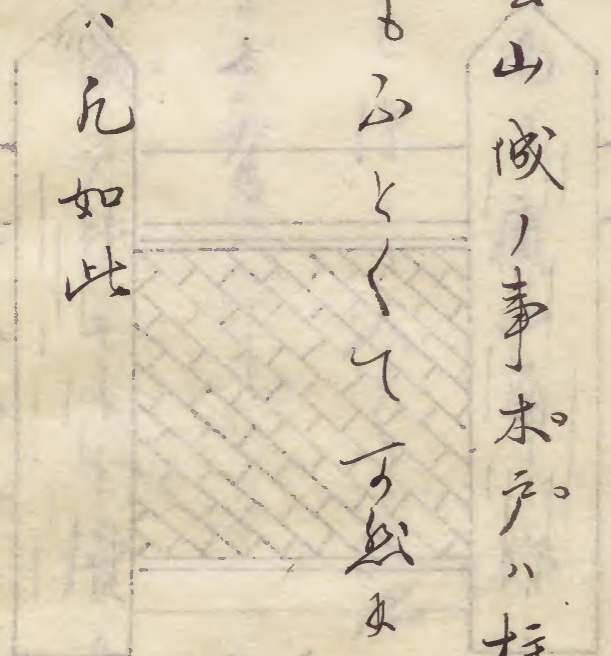 山城ノ事木戸ハ柱
も山とくて可然
ハ凡如此